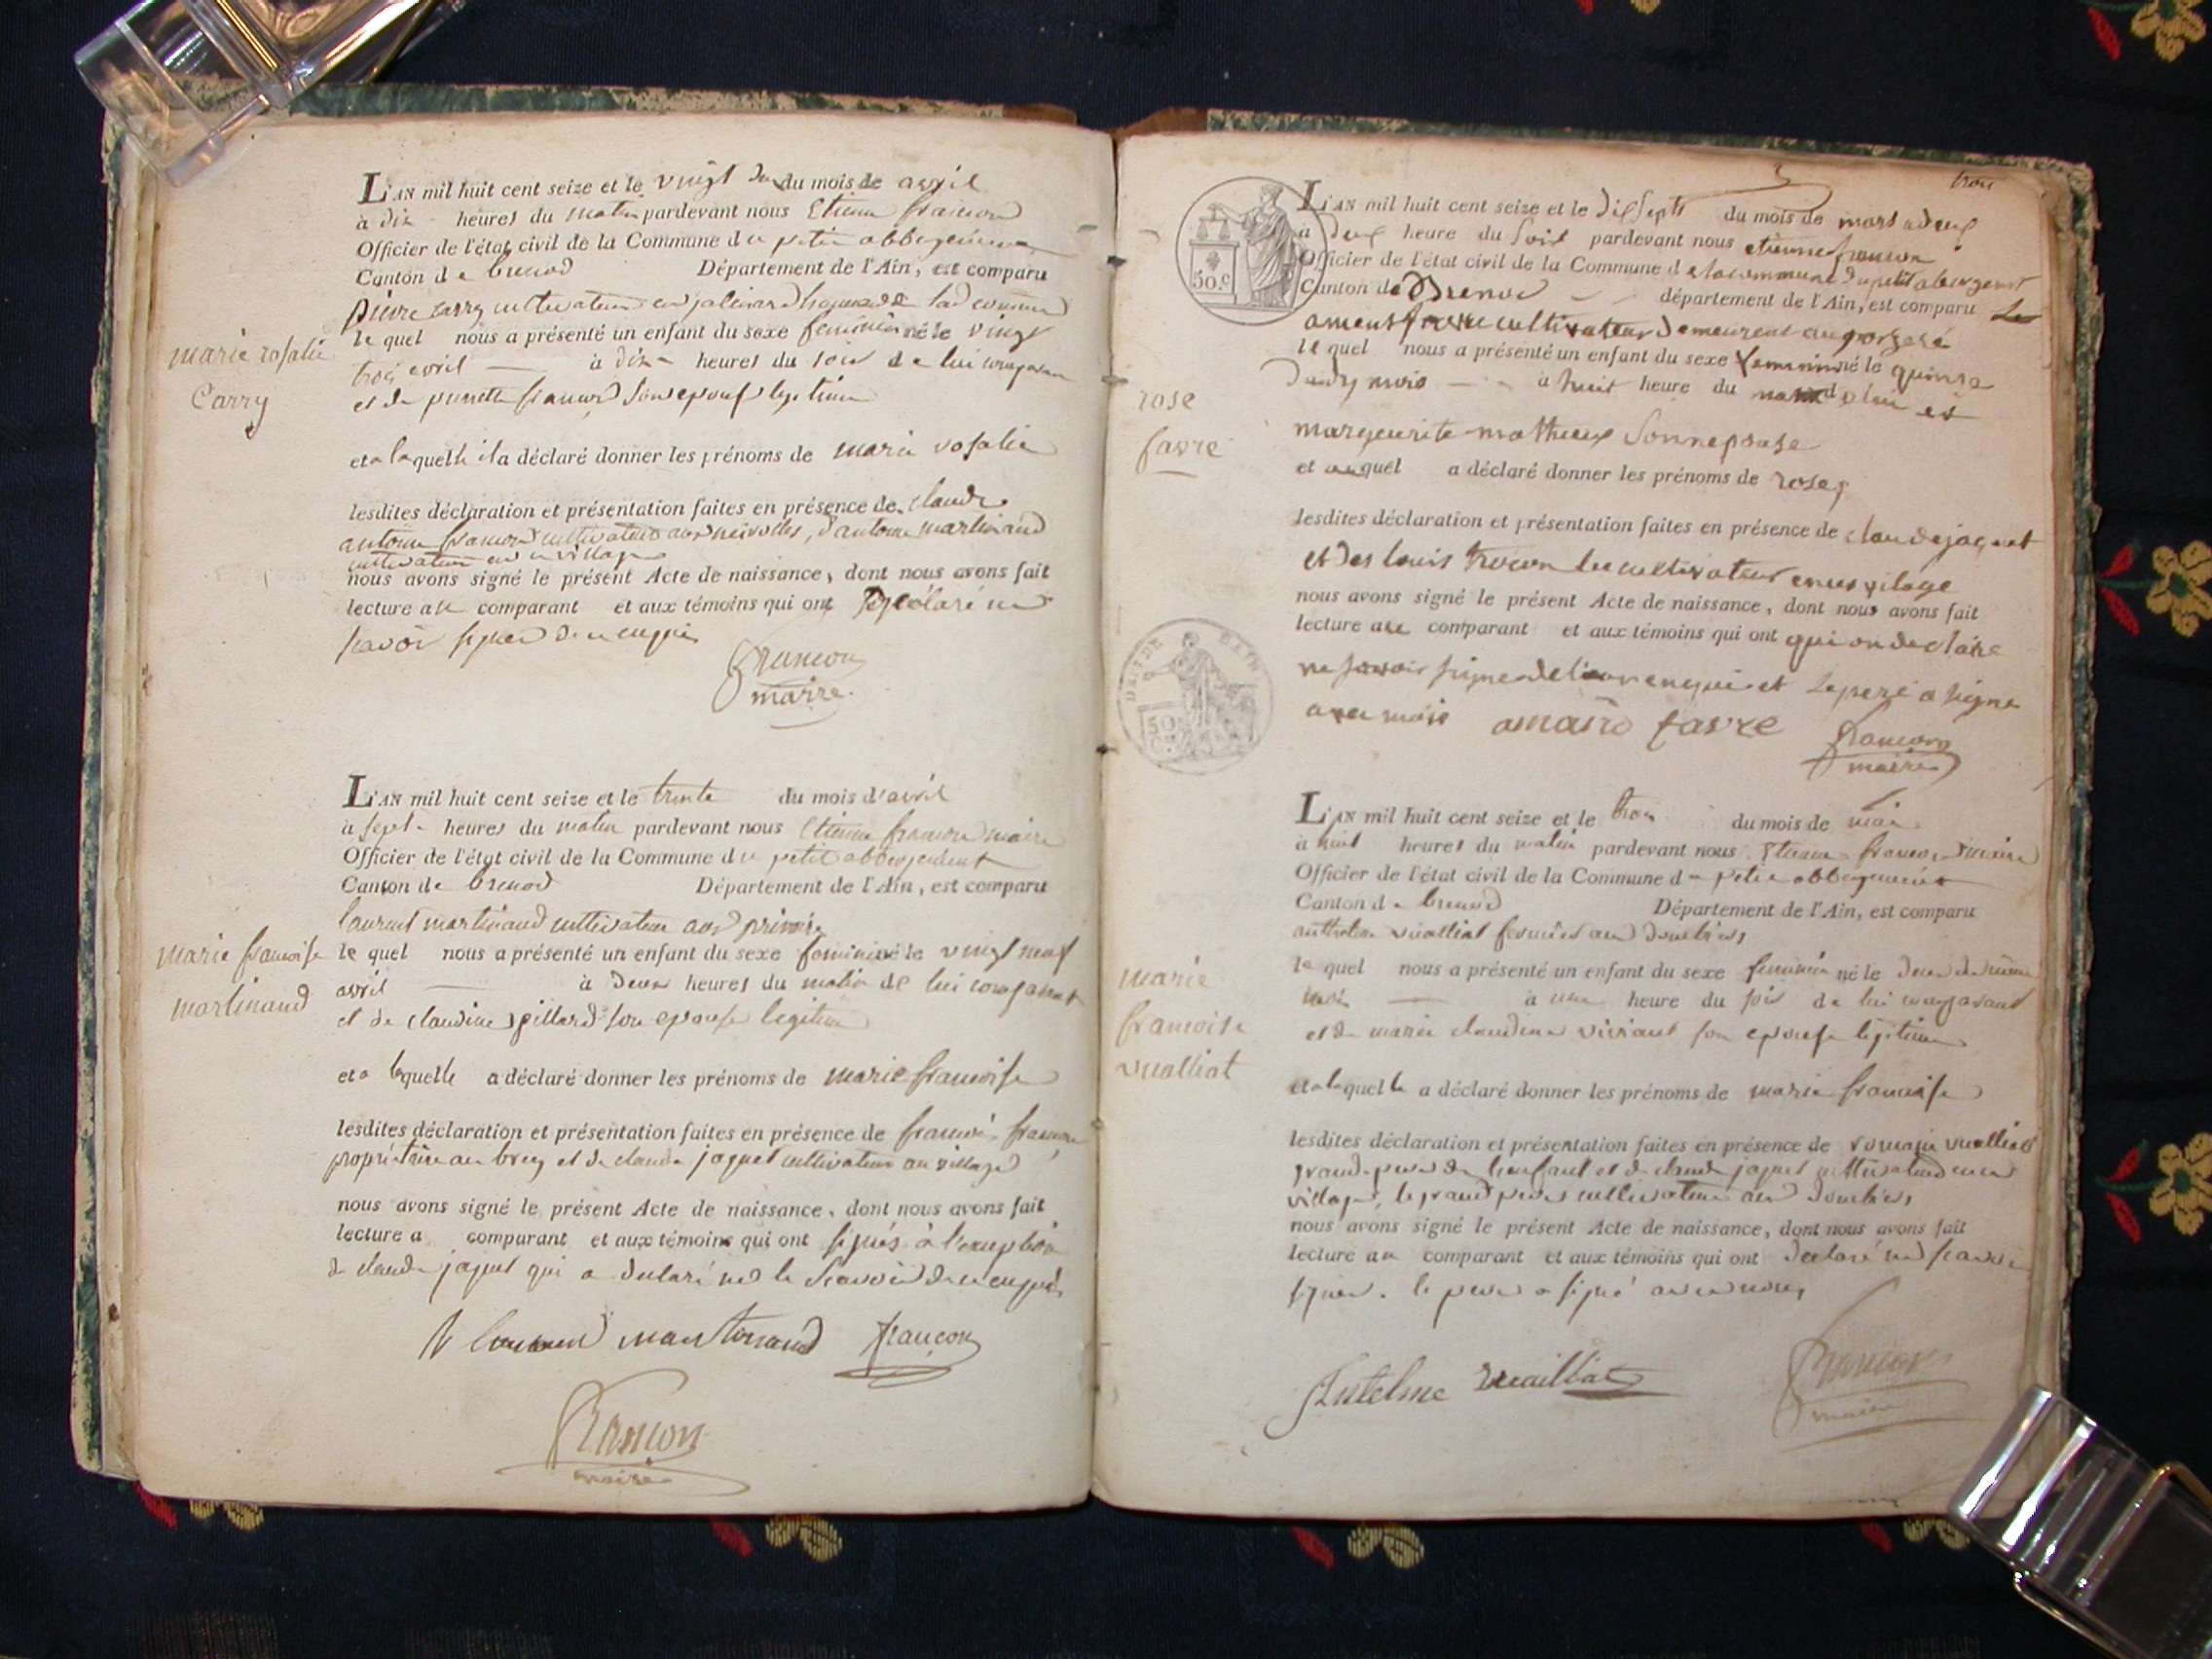 marie rosalie
Carry
L'AN mil huit cent seize et le vingt du mois de avril
à dix heures du matin pardevant nous Etienne francon
Officier de l'état civil de la Commune du petit abbergement
Canton de brenod Département de l'Ain, est comparu
pierre carry cultivateur
le quel nous a présenté un enfant du sexe feminin né le vingt
trois avril à dix heures du soir de lui comparant
et de francon son epouse legitime
et a laquelle il a déclaré donner les prénoms de marie rosalie
lesdites déclaration et présentation faites en présence de claude
antoine francon cultivateur aux, d'antoine martinand
cultivateur village
nous avons signé le présent Acte de naissance, dont nous avons fait
lecture au comparant et aux témoins qui ont déclaré ne
savoir signer de ce enquis
francon
maire
marie francoise
martinand
L'AN mil huit cent seize et le trente du mois d'avril
à sept heures du matin pardevant nous Etienne francon maire
Officier de l'état civil de la Commune du petit abbergement
Canton de brenod Département de l'Ain, est comparu
laurent martinand cultivateur
le quel nous a présenté un enfant du sexe feminin né le vingt neuf
avril à deux heures du matin de lui comparant
et de claudine pillard son epouse legitime
et a laquelle a déclaré donner les prénoms de marie francoise
lesdites déclaration et présentation faites en présence de francois francon
propriétaire au et de claude jaquet cultivateur au village
nous avons signé le présent Acte de naissance, dont nous avons fait
lecture a comparant et aux témoins qui ont signés à l'exception
de claude jaquet qui a declaré ne le scavoir de ce enquis
laurent martinand francon
francon
maire
trois
rose
favre
50.c
L'AN mil huit cent seize et le dissepts du mois de mars a deux
à deux heure du soir pardevant nous etienne francon
Officier de l'état civil de la Commune de la commune du petit abergement
Canton de Brenod département de l'Ain, est comparu
favre cultivateur demeurent
le quel nous a présenté un enfant du sexe feminin né le quinse
dudy mois à huit heure du de lui et
margeurite mathieux sonnepouse
et auquel a déclaré donner les prénoms de rose
lesdites déclaration et présentation faites en présence de claude jaquet
et des louis francon cultivateur vilage
nous avons signé le présent Acte de naissance, dont nous avons fait
lecture au comparant et aux témoins qui ont qui on declaire
ne savoir signer de enquis et le pere a signe
avec mois amand favre francon
maire
50
C.
marie
francoise
vualliat
L'AN mil huit cent seize et le trois du mois de mai
à huit heures du matin pardevant nous Etienne francon maire
Officier de l'état civil de la Commune du petit abbergement
Canton de brenod Département de l'Ain, est comparu
anthelme vualliat fermier
le quel nous a présenté un enfant du sexe feminin né le deux du même
mois à une heure du soir de lui comparant
et de marie claudine viviant son epouse legitime
et a laquelle a déclaré donner les prénoms de marie francoise
lesdites déclaration et présentation faites en présence de romain vualliat
grand pere de l'enfant et de claude jaquet cultivateur
village, le grand pere cultivateur
nous avons signé le présent Acte de naissance, dont nous avons fait
lecture au comparant et aux témoins qui ont declaré ne scavoir
signer. le pere a signé avec nous
Antelme Vuailliat francon
maire